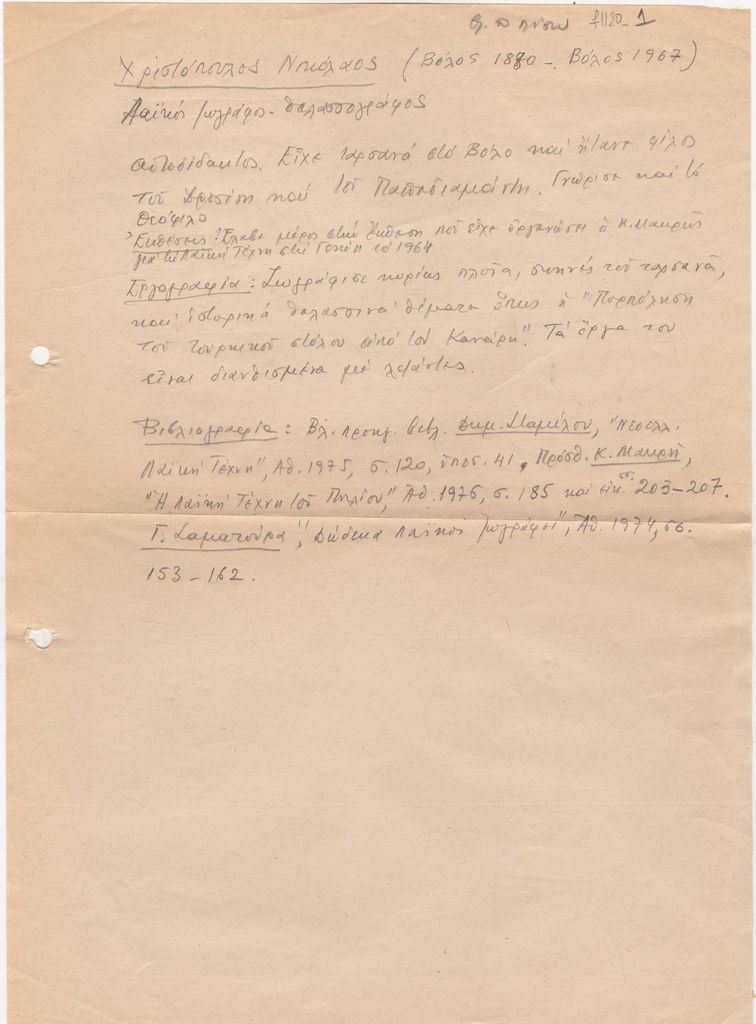 f1120_1
Χριστόπουλος Νικόλαος (Βόλος 1880 - Βόλος 1967)
Λαϊκός ζωγράφος - θαλασσογράφος
Αυτοδίδακτος. Εἶχε ταρσανά στό Βόλο καί ἤτανε φίλος
τοῦ Δροσίνη καί τοῦ Παπαδιαμάντη. Γνώρισε καί τό
Θεόφιλο
Ἐκθέσεις: Ἔλαβε μέρος στήν ἔκθεση πού εἶχε ὀργανώσει ὁ Κ. Μακρῆς
γιά τή Λαϊκή Τέχνη στή Γενεύη τό 1964
Ἐργογραφία: Ζωγράφισε κυρίως πλοῖα, σκηνές τοῦ ταρσανᾶ,
καί ἱστορικά θαλασσινά θέματα ὅπως ἡ "Πυρπόληση
τοῦ τουρκικοῦ στόλου ἀπό τόν Κανάρη". Τά ἔργα του
εἶναι διανθισμένα μέ λεζάντες.
Βιβλιογραφία: Βλ. προηγ. βιβλ. Δημ. Σταμέλου, "Νεοελλ.
Λαϊκή Τέχνη", Ἀθ. 1975, σ. 120, ὑποσ. 41, Πρόσθ. Κ. Μακρῆ,
"Ἡ Λαϊκή Τέχνη τοῦ Πηλίου", Ἀθ. 1976, σ. 185 καί εἰκ. 203-207.
Γ. Σαματούρα, "Δώδεκα Λαϊκοί ζωγράφοι", Ἀθ. 1974, σσ.
153-162.